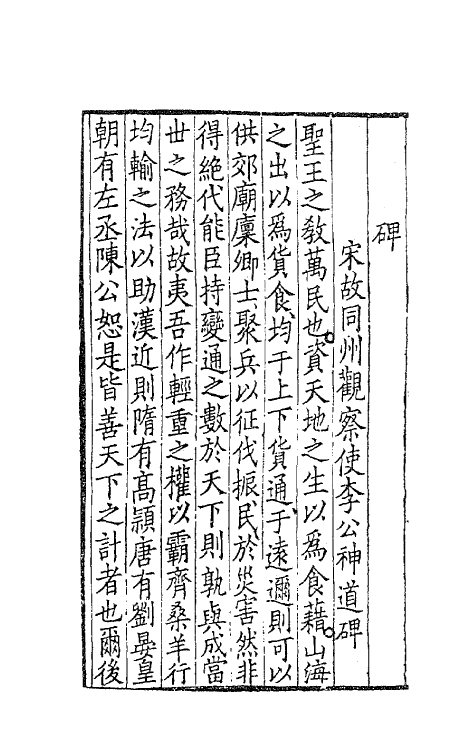 碑
宋故同州觀察使李公神道碑
聖王之敎萬民也資天地之生以爲食藉山海
之出以爲貨食均于上下貨通于遠邇則可以
供郊廟廩卿士聚兵以征伐振民於災害然非
得絶代能臣持變通之數於天下則孰與成當
世之務哉故夷吾作輕重之權以霸齊桑羊行
均輸之法以助漢近則隋有高熲唐有劉晏皇
朝有左丞陳公恕是皆善天下之計者也爾後